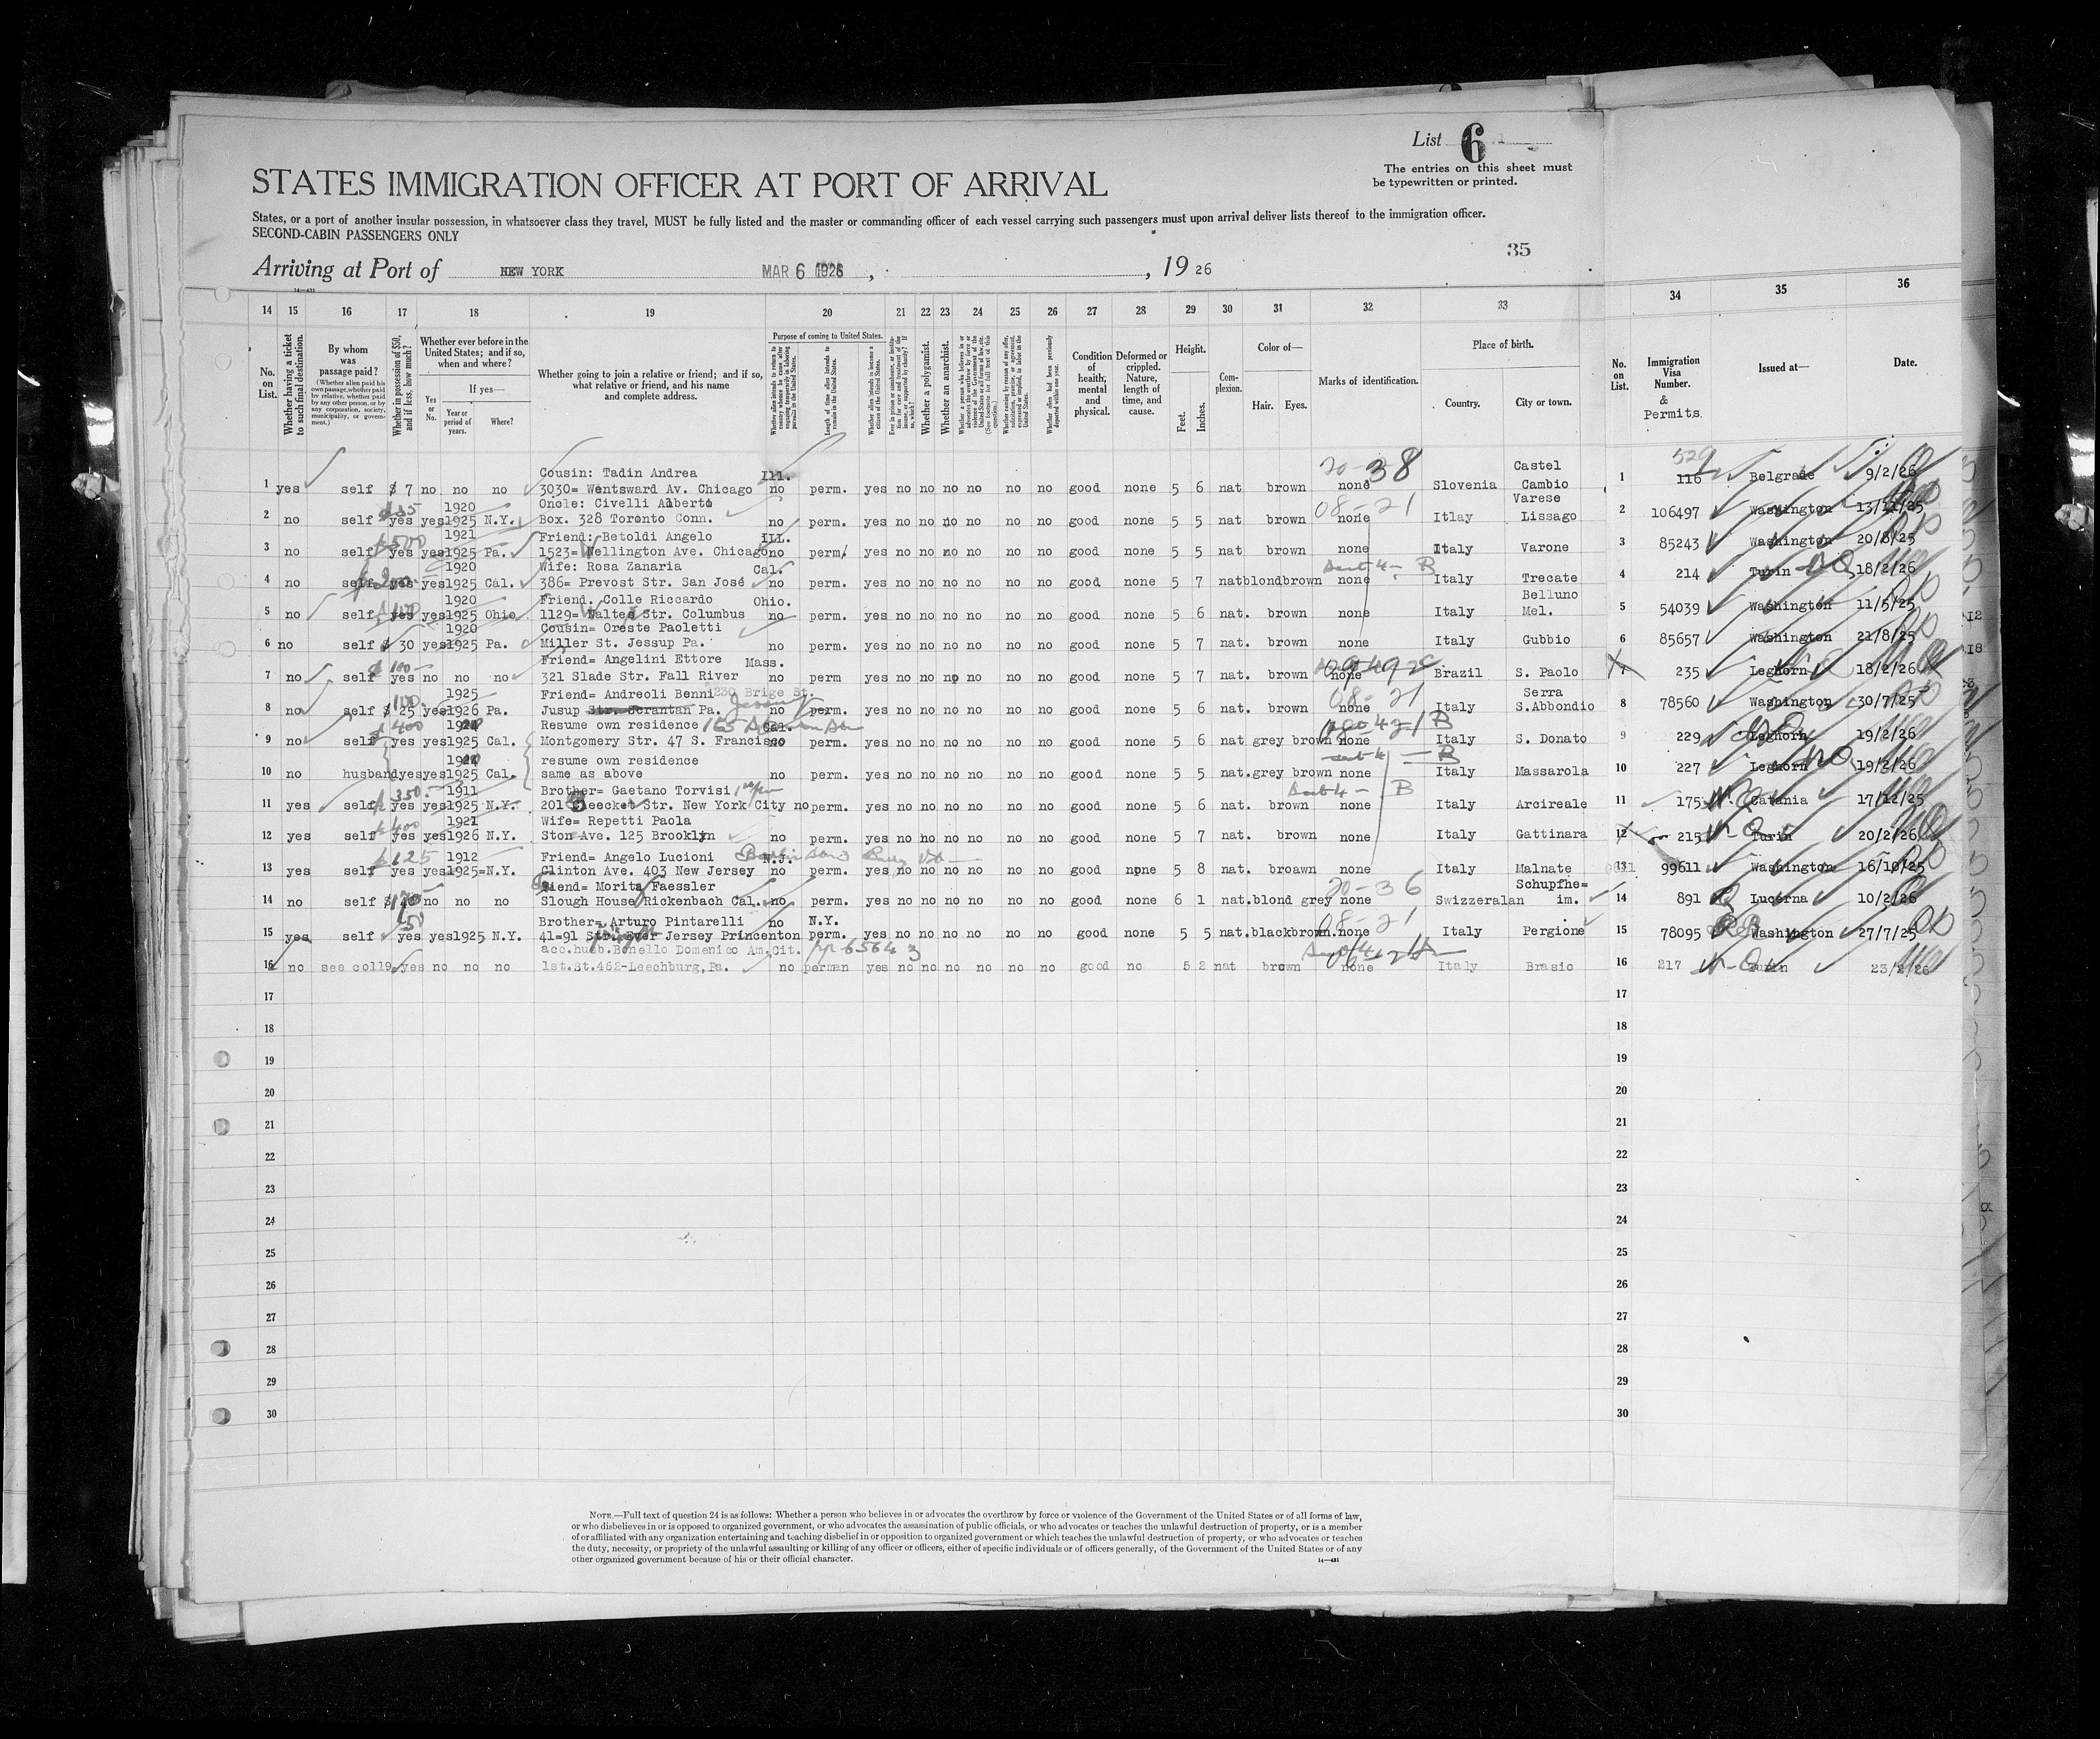 List 6
The entries on this sheet must
be typewritten or printed.
STATES IMMIGRATION OFFICER AT PORT OF ARRIVAL
States, or a port of another insular possession, in whatsoever class they travel, MUST be fully listed and the master or commanding officer of each vessel carrying such passengers must upon arrival deliver lists thereof to the immigration officer.
SECOND-CABIN PASSENGERS ONLY
35
Arriving at Port of NEW YORK MAR 6 1926, , 19 26
14 15 16 17 18 19 20 21 22 23 24 25 26 27 28 29 30 31 32 33 34 35 36
No. on List.
Whether having a ticket to such final destination.
By whom was passage paid?
(Whether alien paid his own passage, whether paid by relative, whether paid by any other person, or by any corporation, society, municipality, or government.)
Whether in possession of $50, and if less, how much?
Whether ever before in the United States; and if so, when and where?
If yes—
Yes or No.
Year or period of years.
Where?
Whether going to join a relative or friend; and if so, what relative or friend, and his name and complete address.
Purpose of coming to United States.
Length of time alien intends to remain in the United States.
Whether alien intends to become a citizen of the United States.
Whether a polygamist.
Whether an anarchist.
Whether alien had been previously deported within one year.
Condition of health; mental and physical.
Deformed or crippled. Nature, length of time, and cause.
Height.
Feet. Inches.
Complexion.
Color of—
Hair. Eyes.
Marks of identification.
Place of birth.
Country. City or town.
No. on List.
Immigration Visa Number. & Permits.
Issued at—
Date.
Cousin: Tadin Andrea Ill. 20-38 Castel 529
1 yes self $ 7 no no no 3030= Wentsward Av. Chicago no perm. yes no no no no no no good none 5 6 nat brown none Slovenia Cambio 1 116 Belgrade 9/2/26
1920 Oncle: Civelli Alberto 08-21 Varese
2 no self yes yes 1925 N.Y. Box. 328 Toronto Conn. no perm. yes no no no no no no good none 5 5 nat brown none Itlay Lissago 2 106497 Washington 13/11/25
$500 1921 Friend: Betoldi Angelo ILL.
3 no self yes yes 1925 Pa. 1523= Wellington Ave. Chicago no perm/ yes no no no no no no good none 5 5 nat brown none Italy Varone 3 85243 Washington 20/8/25
1920 Wife: Rosa Zanaria Cal.
4 no self yes yes 1925 Cal. 386= Prevost Str. San José no perm. yes no no no no no no good none 5 7 nat blond brown none Italy Trecate 4 214 Turin 18/2/26
1920 Friend. Colle Riccardo Ohio. Belluno
5 no self yes yes 1925 Ohio 1129= Waltee Str. Columbus no perm. yes no no no no no no good none 5 6 nat. brown none Italy Mel. 5 54039 Washington 11/5/25
1920 Cousin= Oreste Paoletti
6 no self $ 30 yes 1925 Pa. Miller St. Jessup Pa. no perm. yes no no no no no no good none 5 7 nat. brown none Italy Gubbio 6 85657 Washington 21/8/25
$ 100- Friend= Angelini Ettore Mass.
7 no self yes no no no 321 Slade Str. Fall River no perm yes no no no no no no good none 5 7 nat. brown none Brazil S. Paolo 7 235 Leghorn 18/2/26
100. 1925 Friend= Andreoli Benni 230 Brige St. 08-21 Serra
8 no self $ 25 yes 1926 Pa. Jusup Str. Scrantan Pa. Jessup no perm. yes no no no no no no good none 5 6 nat. brown none Italy S.Abbondio 8 78560 Washington 30/7/25
$400 Resume own residence Cal.
9 no self yes yes 1925 Cal. Montgomery Str. 47 S. Francisco no perm. yes no no no no no no good none 5 6 nat grey brown none Italy S. Donato 9 229 Leghorn 19/2/26
resume own residence
10 no husband yes yes 1925 Cal. same as above no perm. yes no no no no no no good none 5 5 nat. grey brown none Italy Massarola 10 227 Leghorn 19/2/26
350.- 1911 Brother= Gaetano Torvisi
11 yes self yes yes 1925 N.Y. 201 Bleecket Str. New York City no perm. yes no no no no no no good none 5 6 nat. brown none Italy Arcireale 11 175 Catania 17/12/25
$400 1921 Wife= Repetti Paola
12 yes self yes yes 1926 N.Y. Stone Ave. 125 Brooklyn no perm. yes no no no no no no good none 5 7 nat. brown none Italy Gattinara 12 215 Turin 20/2/26
$125 1912 Friend= Angelo Lucioni N.J.
13 yes self yes yes 1925= N.Y. Clinton Ave. 403 New Jersey no perm. yes no no no no no no good none 5 8 nat. broawn none Italy Malnate 13 99611 Washington 16/10/25
Friend= Morita Faessler 20-36 Schupfhe=
14 no self $ no no no Slough House Rickenbach Cal. no perm. yes no no no no no no good none 6 1 nat. blond grey none Swizzeralan im. 14 891 Lucerna 10/2/26
Brother= Arturo Pintarelli no N.Y. 08-21
15 yes self yes yes 1925 N.Y. 41=91 Jersey Princenton perm. yes no no no no no no good none 5 5 nat. black brown. none Italy Pergione 15 78095 Washington 27/7/25
acc.husb.Bonello Domenico Am.Cit. pp 65643
16 no see col19 yes no no no 1st.St.462-Leechburg,Pa. no perman yes no no no no no no good no 5 2 nat brown none Italy Brasio 16 217 Turin 23/2/26
17 17
18 18
19 19
20 20
21 21
22 22
23 23
24 24
25 25
26 26
27 27
28 28
29 29
30 30
NOTE.—Full text of question 24 is as follows: Whether a person who believes in or advocates the overthrow by force or violence of the Government of the United States or of all forms of law,
or who disbelieves in or is opposed to organized government, or who advocates the assassination of public officials, or who advocates or teaches the unlawful destruction of property, or is a member
of or affiliated with any organization entertaining and teaching disbelief in or opposition to organized government or which teaches the unlawful destruction of property, or who advocates or teaches
the duty, necessity, or propriety of the unlawful assaulting or killing of any officer or officers, either of specific individuals or of officers generally, of the Government of the United States or of any
other organized government because of his or their official character.
14—431